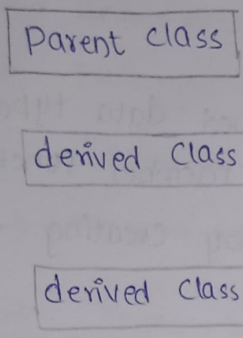 Parent class
derived class
derived class